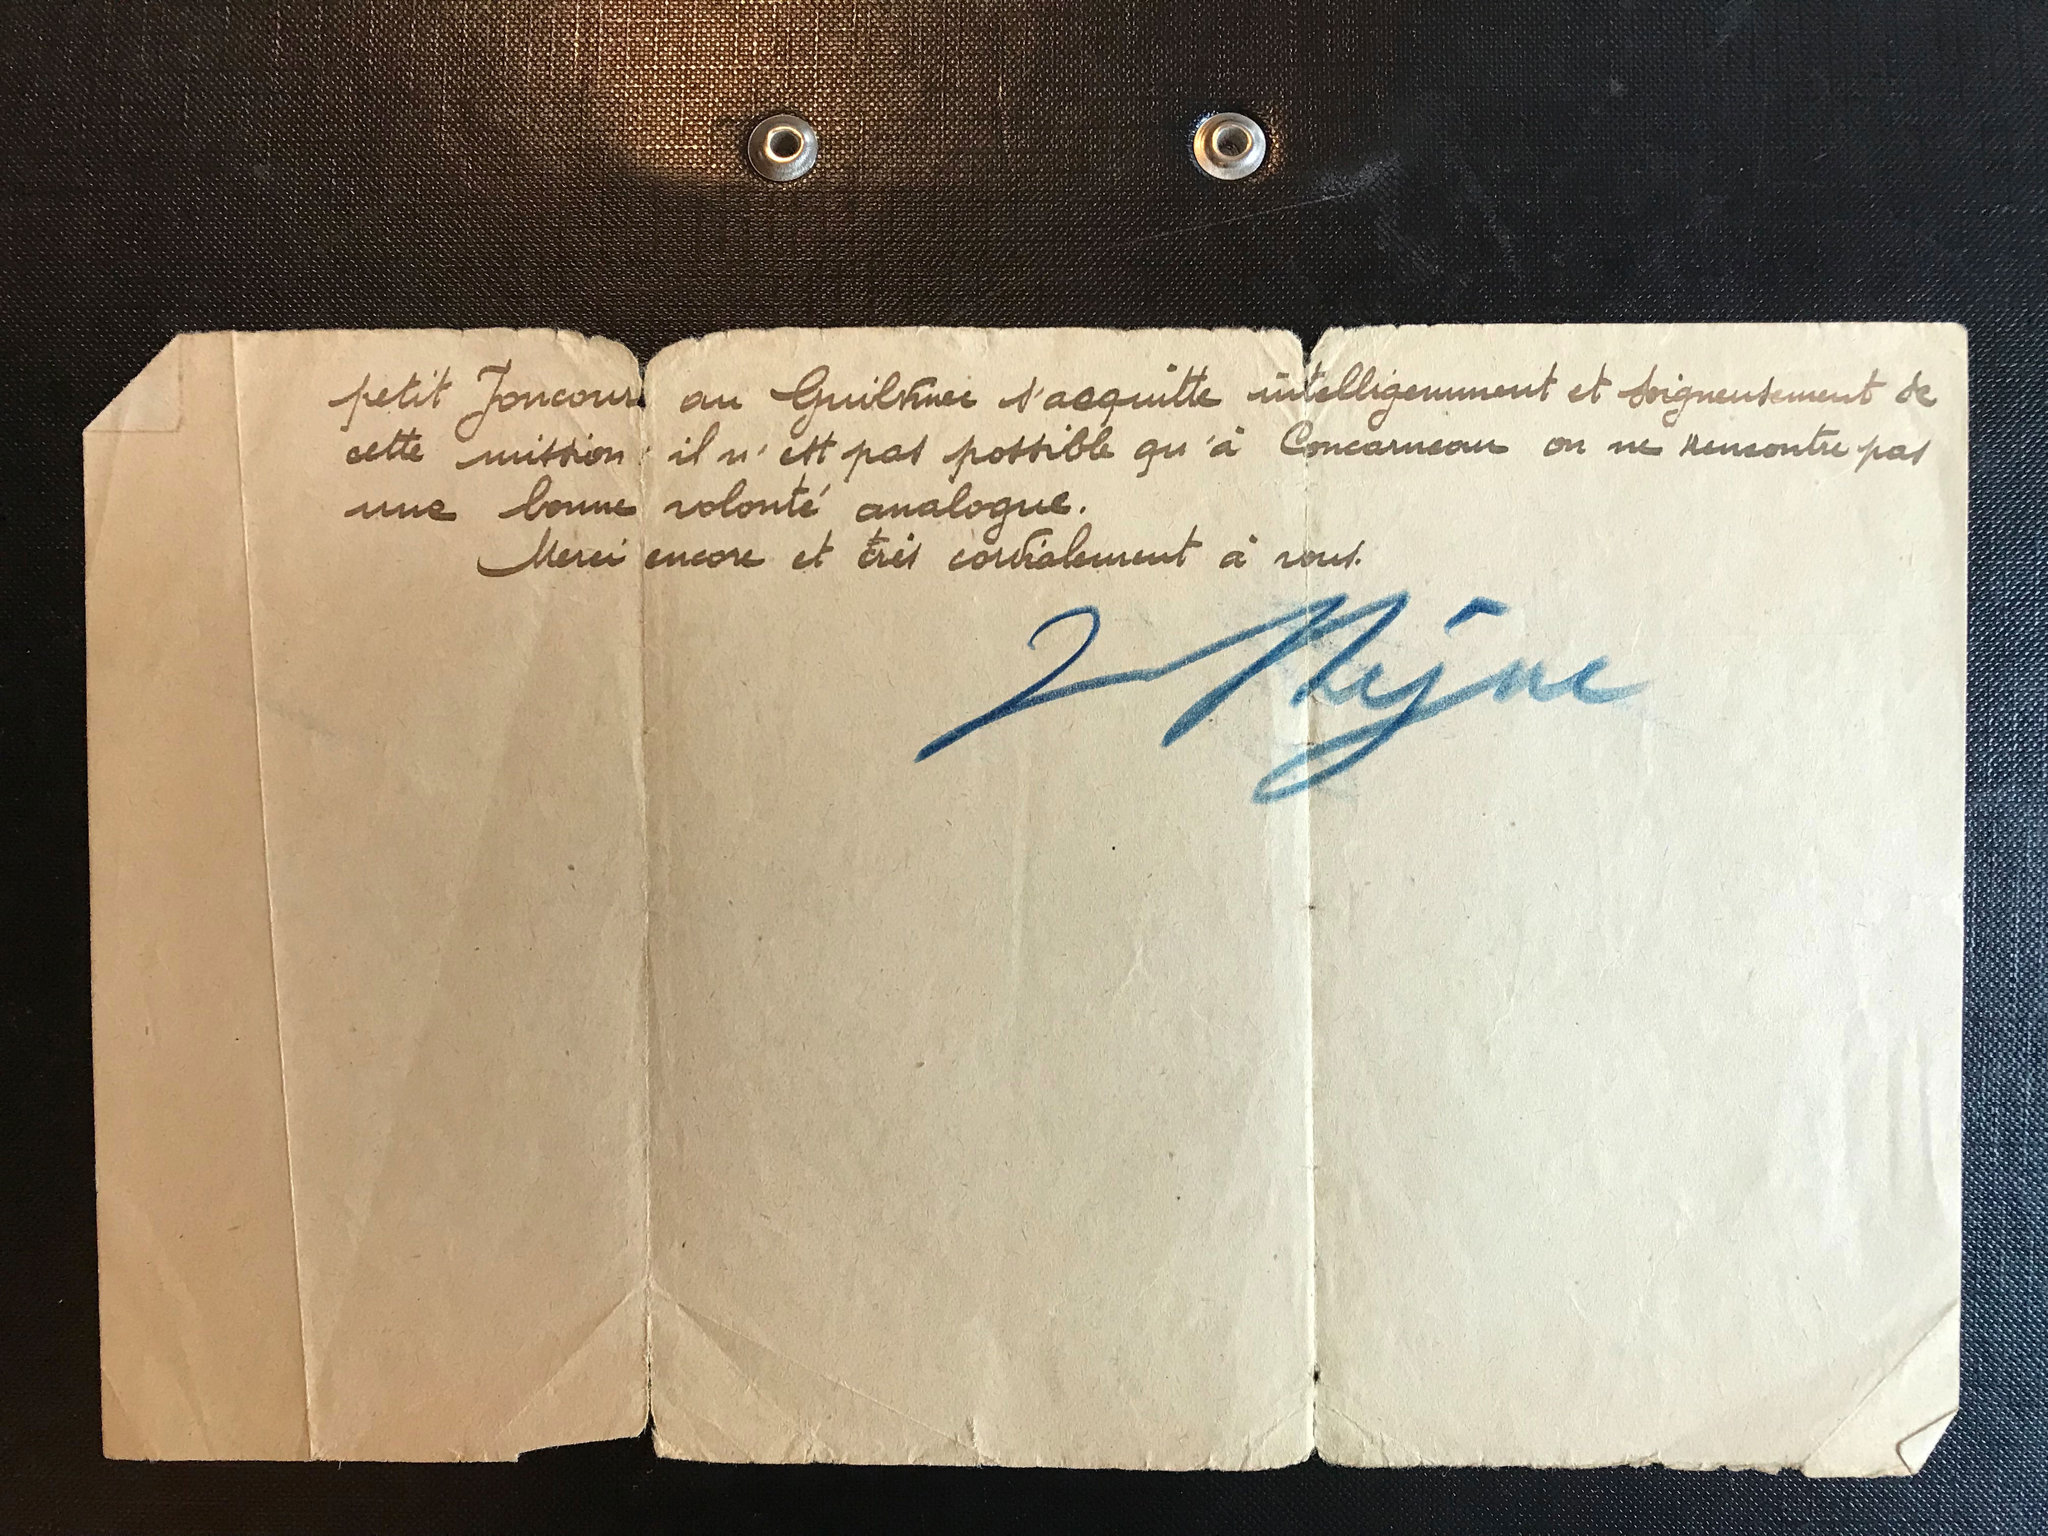 petit Joncour au Guilvinec s'acquitte intelligemment et soigneusement de
cette mission : il n'est pas possible qu'à Concarneau on ne rencontre pas
une bonne volonté analogue.
Merci encore et très cordialement à vous.